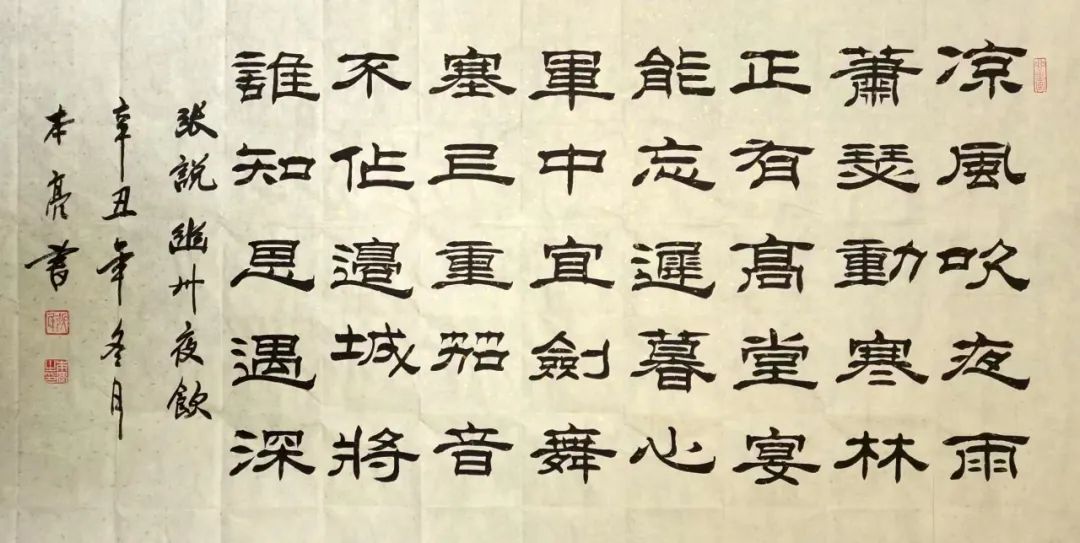 凉風吹夜雨
蕭瑟動寒林
正有髙堂宴
能忘遲暮心
軍中宜劍舞
塞上重笳音
不作邊城將
誰知恩遇深
張說幽州夜飲
辛丑年冬月
本亮書